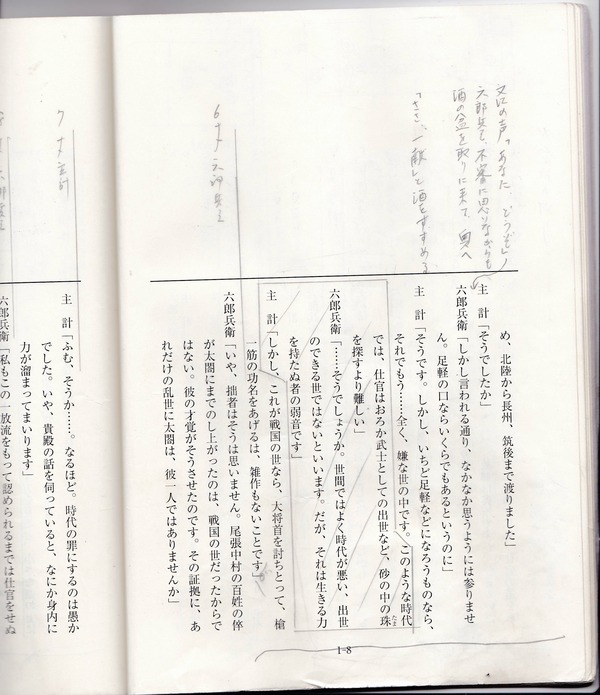 又にの声「あなた、どうぞ」
六郎兵ェ、不審に思いながらも
酒の盆を取りに来て、奥へ
「ささ、一献」と酒をすすめる
め、北陸から長州、筑後まで渡りました」
主　計「そうでしたか」
六郎兵衛「しかし言われる通り、なかなか思うようには参りませ
ん。足軽の口ならいくらでもあるというのに」
主　計「そうです。しかし、いちど足軽などになろうものなら、
それでもう……全く、嫌な世の中です。このような時代
では、仕官はおろか武士としての出世など、砂の中の珠
たま
を探すより難しい」
六郎兵衛「……そうでしょうか。世間ではよく時代が悪い、出世
のできる世ではないといいます。だが、それは生きる力
を持たぬ者の弱音です」
主　計「しかし、これが戦国の世なら、大将首を討ちとって、槍
一筋の功名をあげるは、雑作もないことです」
六郎兵衛「いや、拙者はそうは思いません。尾張中村の百姓の倅
が太閤にまでのし上がったのは、戦国の世だったからで
はない。彼の才覚がそうさせたのです。その証拠に、あ
れだけの乱世に太閤は、彼一人ではありませんか」
6ナメ 六郎兵ェ
1-8
7 ナメ 主計
主　計「ふむ、そうか……。なるほど。時代の罪にするのは愚か
でした。いや、貴殿の話を伺っていると、なにか身内に
力が溜まってまいります」
六郎兵衛「私もこの一放流をもって認められるまでは仕官をせぬ